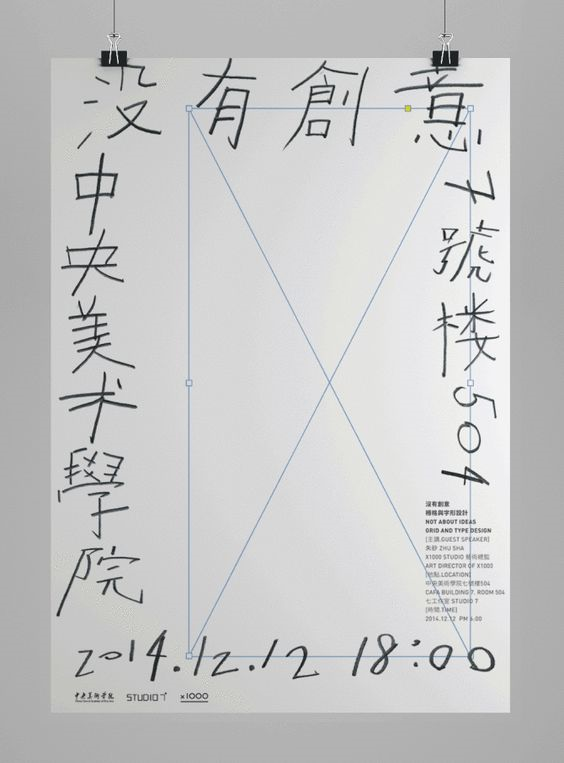 没有創意
中央美术學院
七號楼504
沒有創意
柵格與字形設計
NOT ABOUT IDEAS
GRID AND TYPE DESIGN
[主講.GUEST SPEAKER]
朱砂 ZHU SHA
X1000 STUDIO 藝術總監
ART DIRECTOR OF X1000
[地點.LOCATION]
中央美術學院七號樓504
CAFA BUILDING 7, ROOM 504
七工作室 STUDIO 7
[時間.TIME]
2014.12.12 PM 6:00
2014.12.12 18:00
中央美術學院
STUDIO 7
×1000